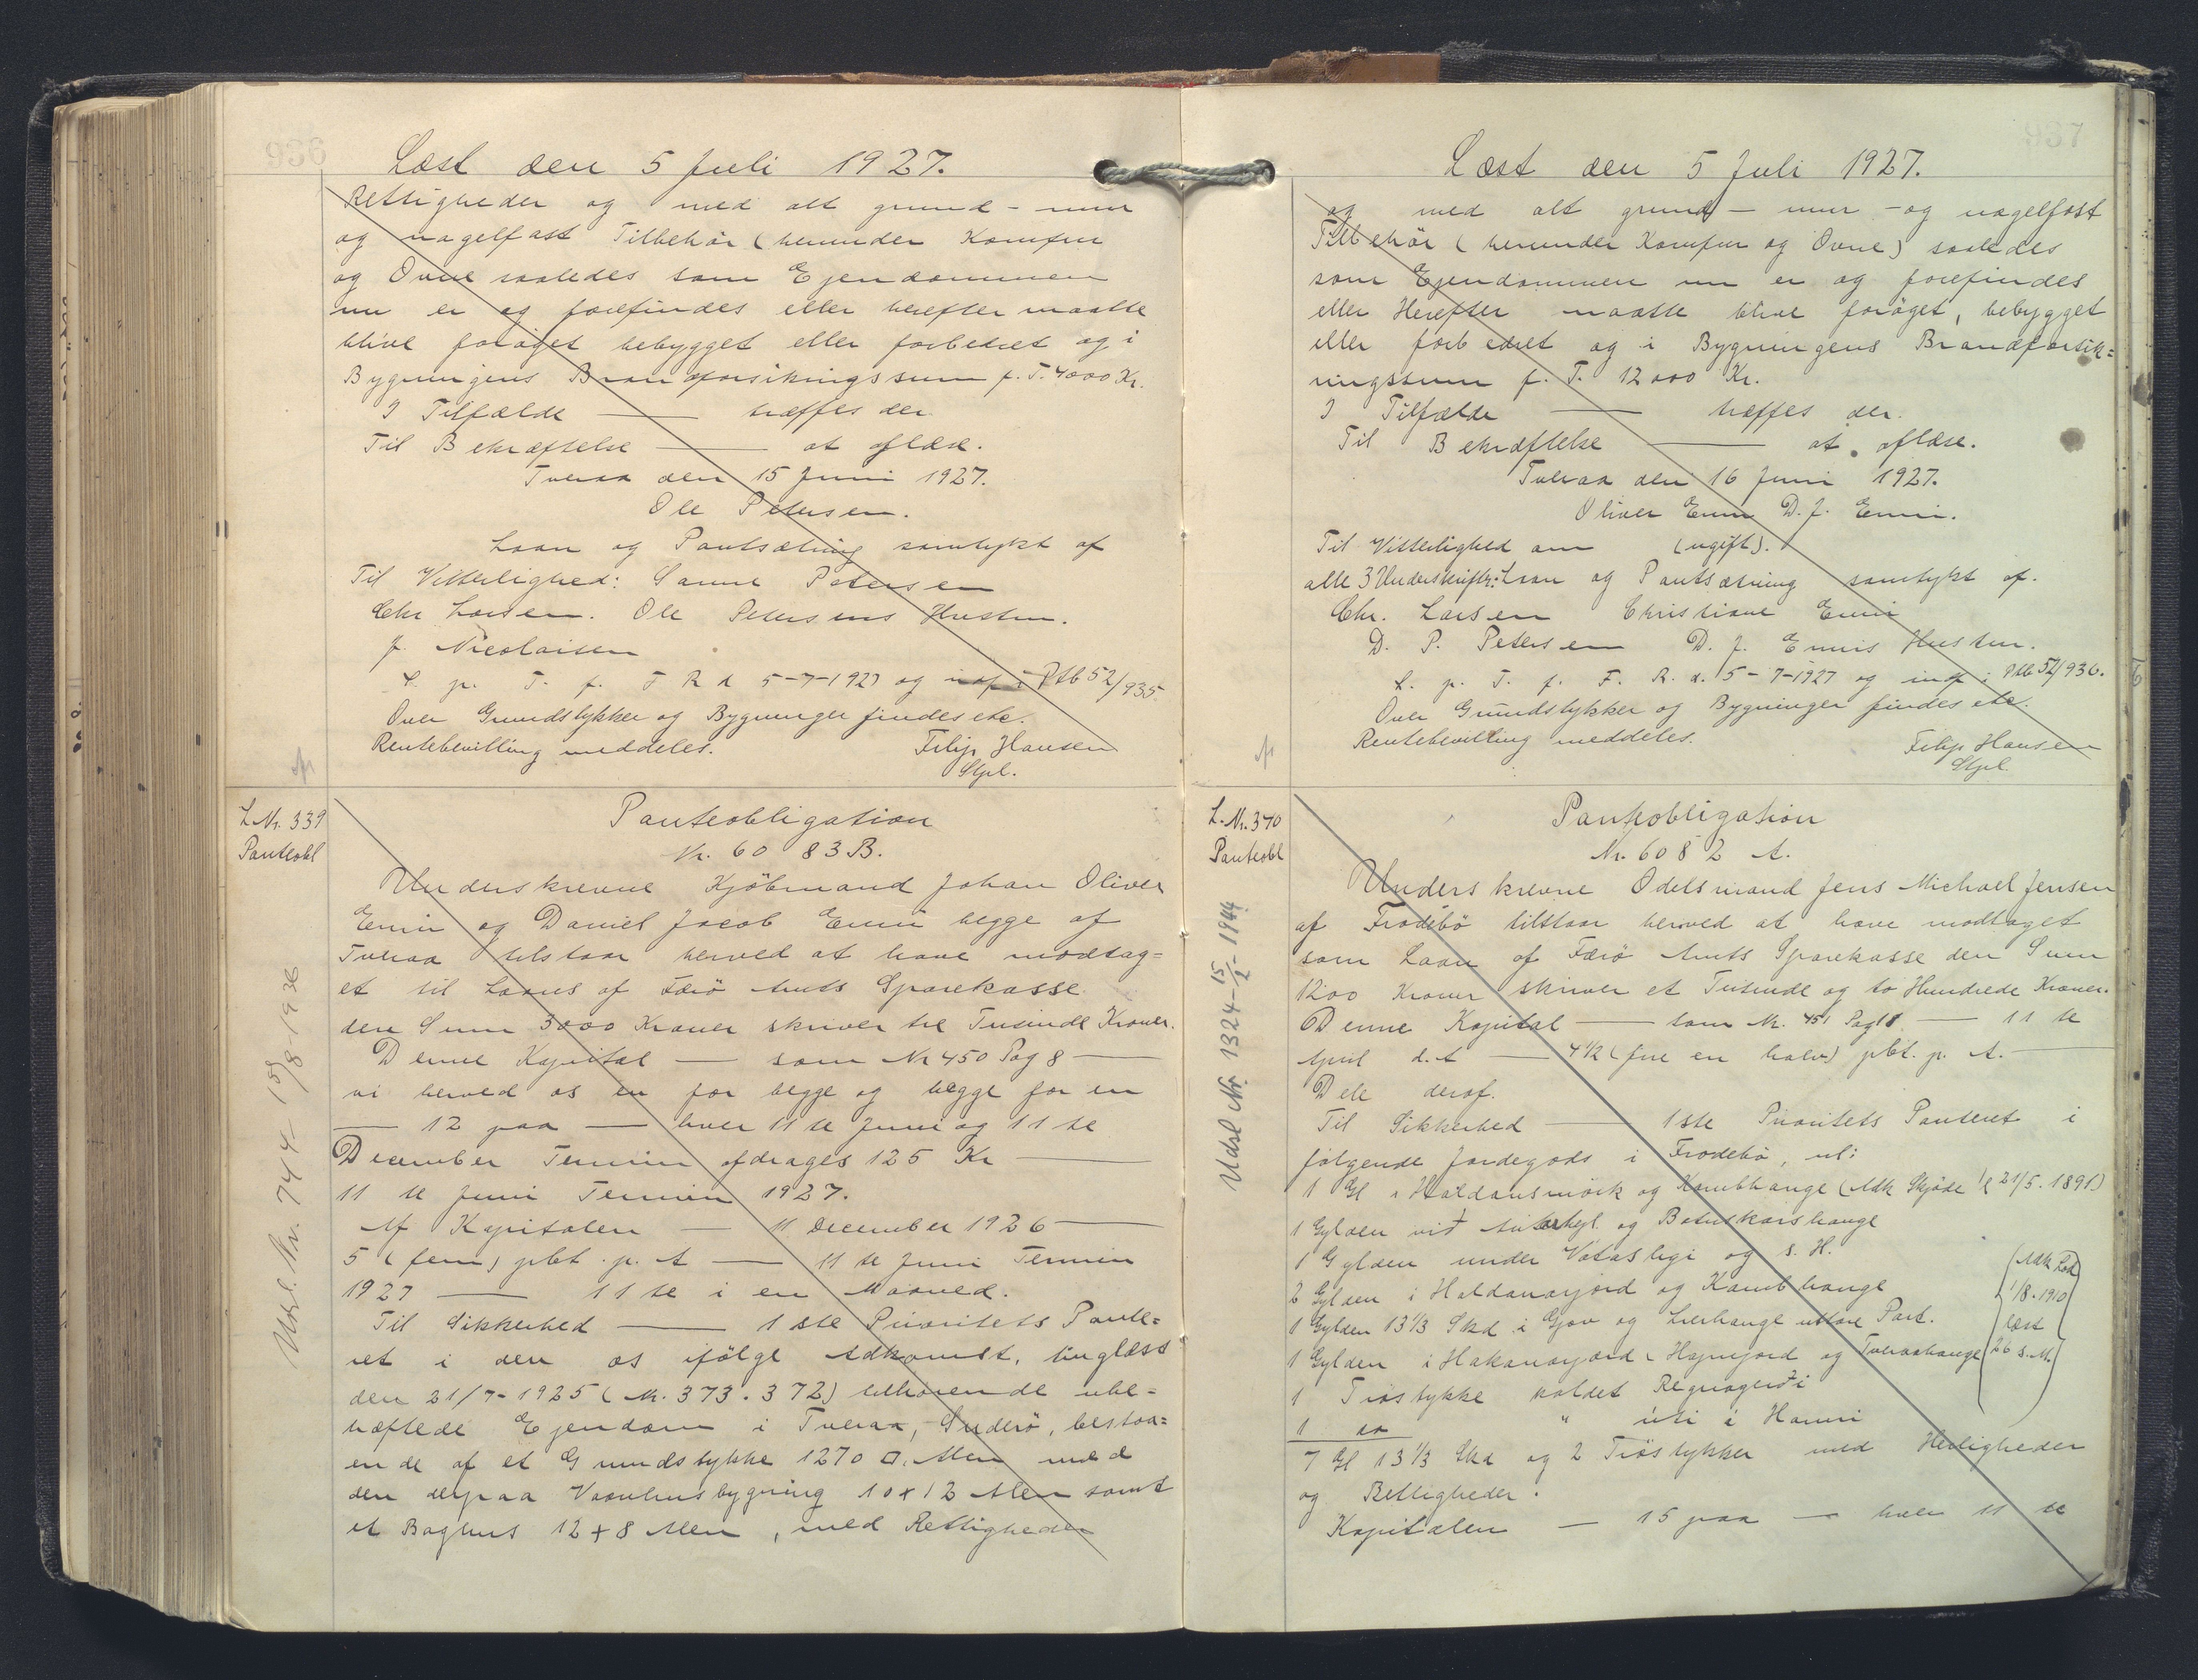 936
Læst den 5 Juli 1927.
Rettigheder og med alt grund - mur
og nagelfast Tilbehör (herunder Komfur
og Ovne saaledes som Ejendommen
nu er og forefindes eller herefter maatte
blive foröget bebygget eller forbedret og i
Bygningens Brandforsikringssum f. T. 4000 Kr.
I Tilfælde — træffes der
Til Bekræftelse — at aflæse.
Tveraa den 15 Juni 1927.
Ole Petersen.
Laan og Pantsætning samtykt af
Til Vitterlighed: Sanne Petersen
Chr Larsen. Ole Petersens Hustru.
J. Nicolaisen
L. p. T. f. F R d 5-7-1927 og indf i Ptb 52/935.
Over Grundstykker og Bygninger findes etc.
Rentebevilling meddeles. Filip Hansen
Stpl.
L Nr. 339
Panteobl
Udsl. Nr. 744 - 15/8-1936
Panteobligation
Nr. 6083 B.
Underskrevne Kjöbmand Johan Oliver
Enni og Daniel Jacob Enni begge af
Tveraa tilstaar herved at have modtag=
et til Laans af Færö Amts Sparekasse
den Sum 3000 Kroner skriver tre Tusinde Kroner.
Denne Kapital — som Nr 450 Pag 8 —
vi herved os en for begge og begge for en
— 12 paa — hver 11 te Juni og 11 te
December Termin afdrages 125 Kr —
11 te Juni Termin 1927.
Af Kapitalen — 11 December 1926 —
5 (fem) pCt. p. A — 11 te Juni Termin
1927 — 11 te i en Maaned.
Til Sikkerhed — 1ste Prioritets Pante=
ret i den os ifölge Adkomst, tinglæst
den 21/7-1925 (Nr. 373. 372) tilhörende ube=
hæftede Ejendom i Tveraa, Suderö, bestaa=
ende af et Grundstykke 1270 □ Alen med
den derpaa Vaanhusbygning 10 x 12 Alen samt
et Baghus 12 x 8 Alen, med Rettigheder
937
Læst den 5 Juli 1927.
og med alt grund - mur - og nagelfast
Tilbehör (herunder Komfur og Ovne) saaledes
som Ejendommen nu er og forefindes
eller Herefter maatte blive foröget, bebygget
eller forbedret og i Bygningens Brandforsik=
ringssum f. T. 12000 Kr.
I Tilfælde — træffes der.
Til Bekræftelse — at aflæse.
Tveraa den 16 Juni 1927.
Oliver Enni D. J. Enni.
Til Vitterlighed om (ugift).
alle 3 Underskrifter: Laan og Pantsætning samtykt af.
Chr. Larsen Christiane Enni
D. P. Petersen D. J. Ennis Hustru.
L. p. T. f. F. R. d. 5-7-1927 og indf i Ptb 52/936.
Over Grundstykker og Bygninger findes etc.
Rentebevilling meddeles. Filip Hansen
Stpl
L. Nr. 340
Panteobl
Udsl Nr. 1324 - 15/2 - 1944
Panteobligation
Nr. 6082 A.
Underskrevne Odelsmand Jens Michael Jensen
af Frodebö tilstaar herved at have modtaget
som Laan af Færö Amts Sparekasse den Sum
1200 Kroner skriver et Tusinde og to Hundrede Kroner.
Denne Kapital — som Nr. 451 Pag 8 — 11 te
April d. A — 4½ (fire en halv) pCt. p. A. —
Dele deraf.
Til Sikkerhed — 1ste Prioritets Panteret i
fölgende Jordegods i Frodebö, nl:
1 Gl i Haldansmörk og Kambhange (Adk Skjöde l 21/5. 1891)
1 Gylden vid og Botnskarshange
1 Gylden under Vatnsligi og s. H.
2 Gylden i Haldanarjord og Kambhange
1 Gylden 13 1/3 Skd i Gjov og Lierhange uttare Part.
1 Gylden i Hakanarjord i Hojnejord og Tveraahange
(Adk Lod
1/8. 1910
læst
26 s. M.)
1 Tröstykke kaldet Regnagerdi
1 do " uti i Hamri
7 Gl 13 1/3 Skd og 2 Tröstykker med Herligheder
og Rettigheder.
Kapitalen — 15 paa — hver 11 te